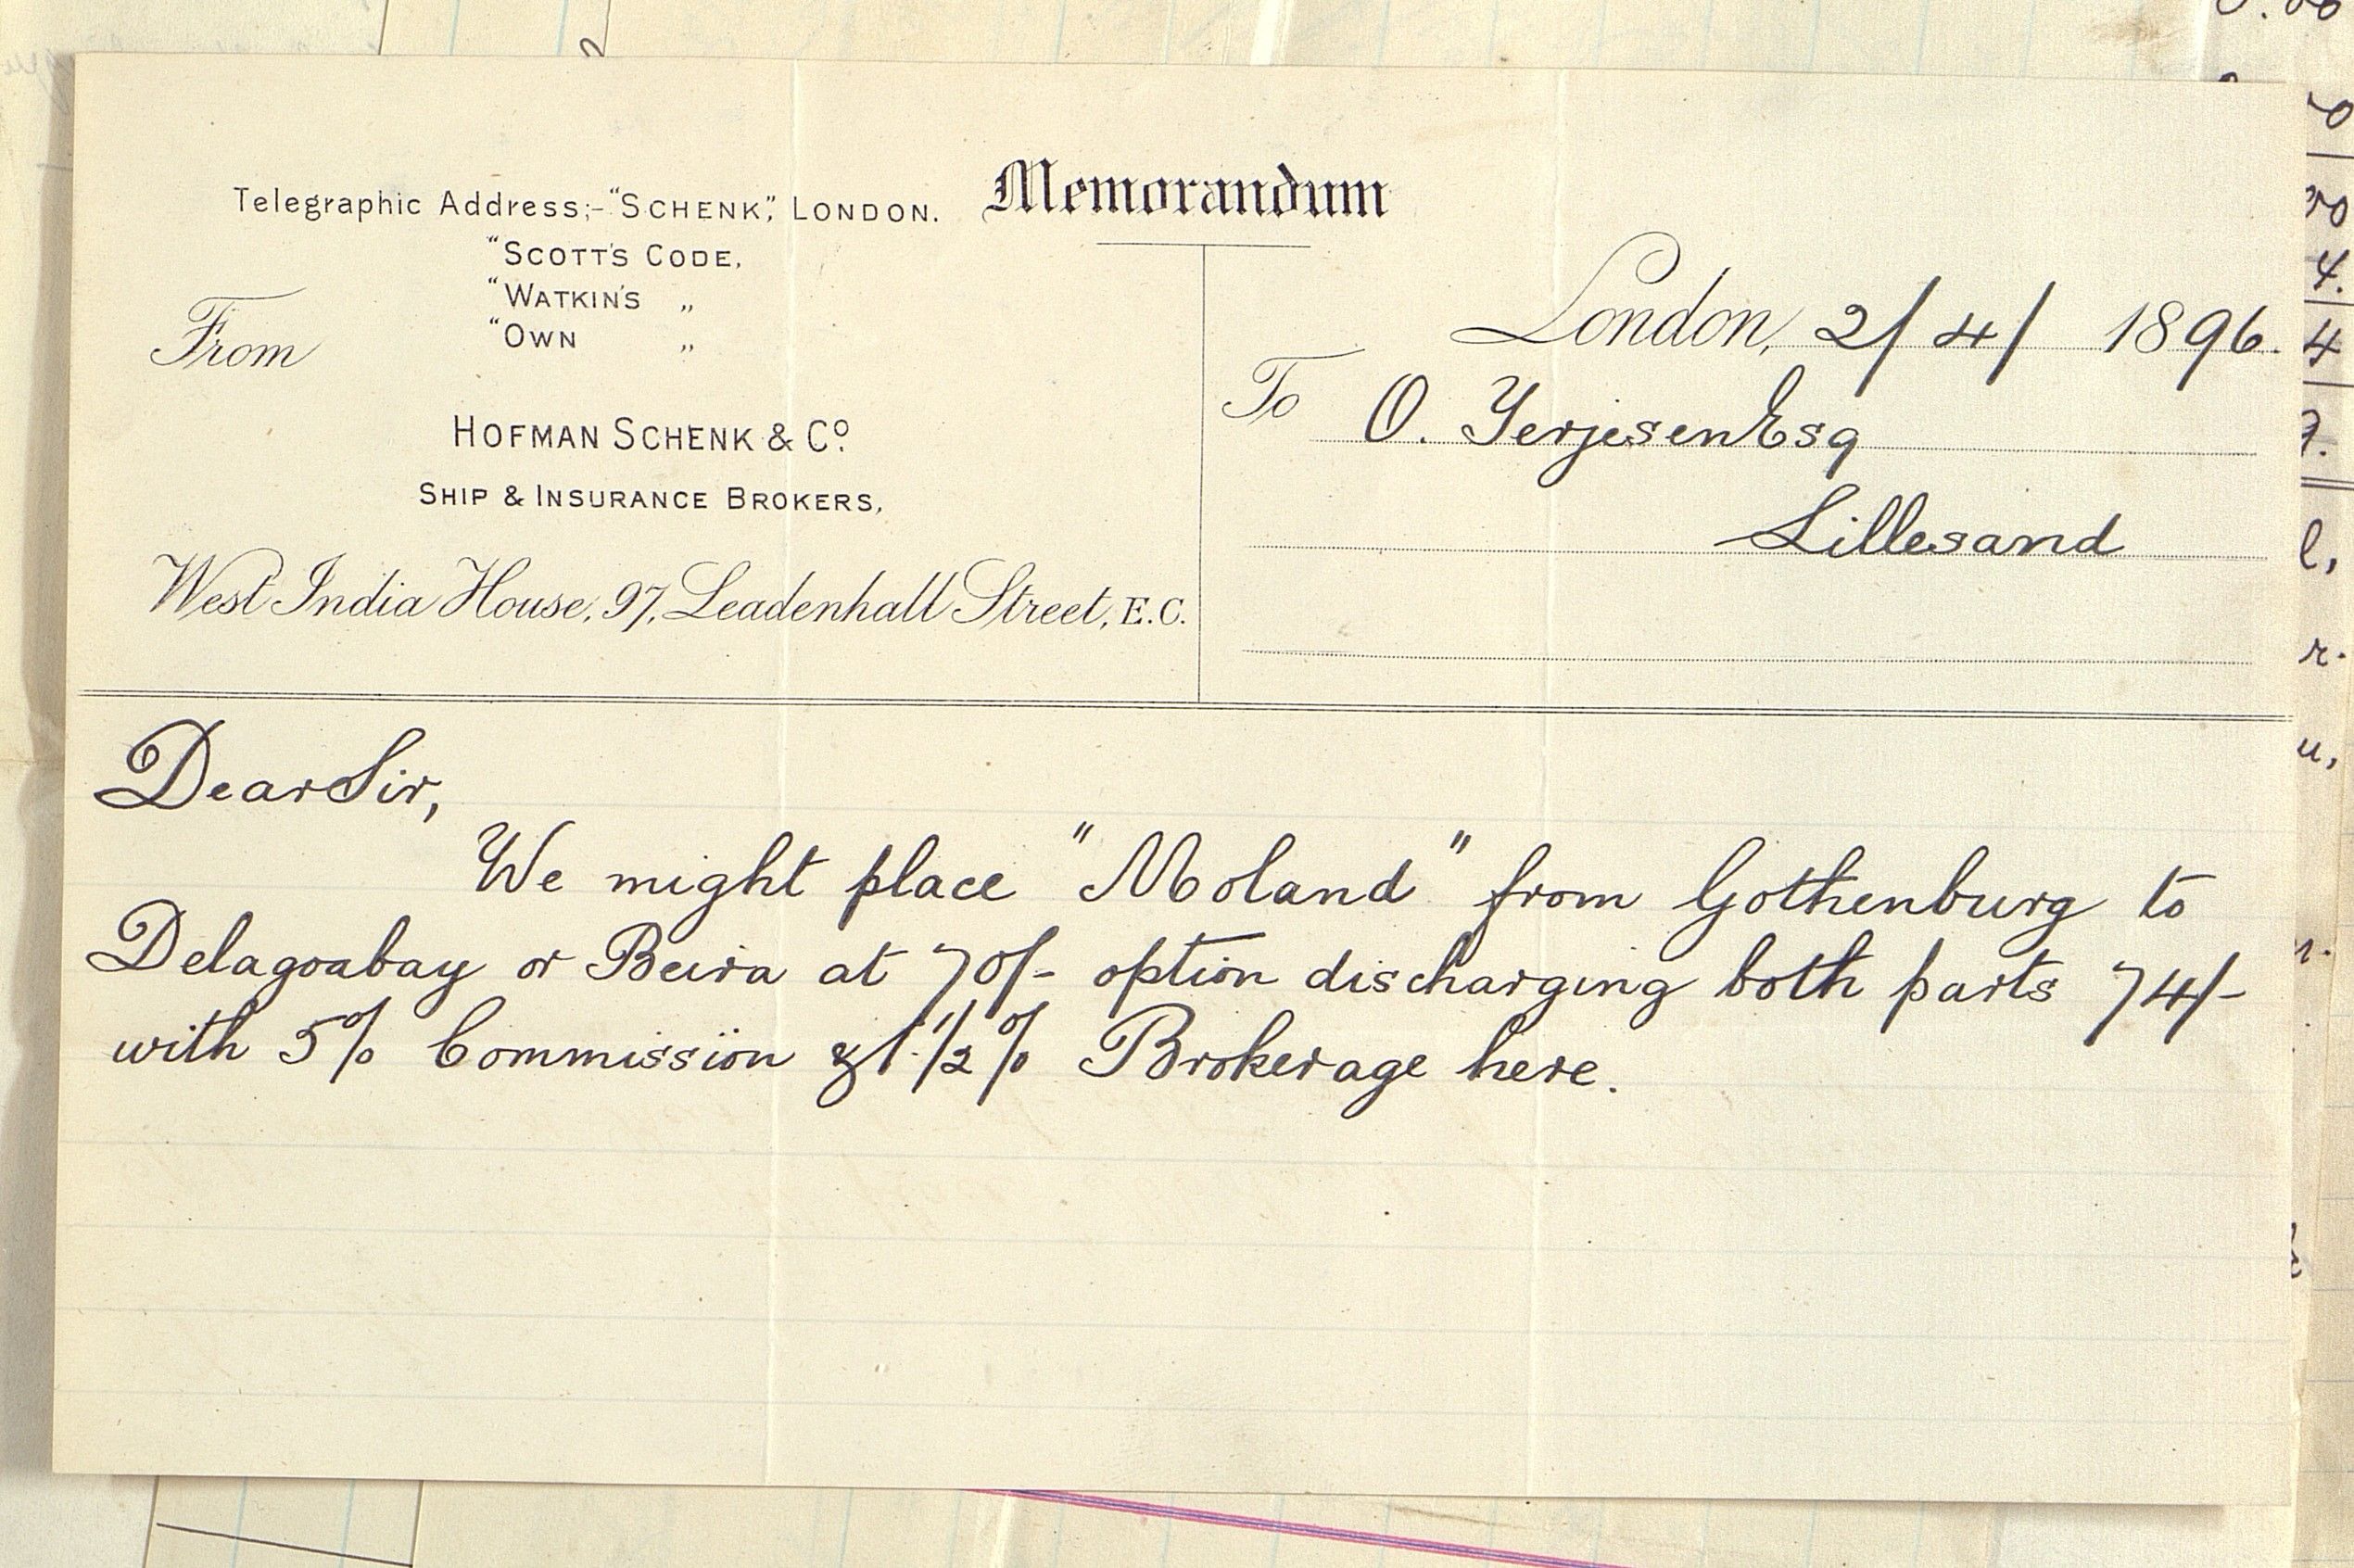 Memorandum
Telegraphic Address;- "SCHENK", LONDON.
"SCOTT'S CODE,
"WATKIN'S „
"OWN „
From
HOFMAN SCHENK & Cº
SHIP & INSURANCE BROKERS,
West India House, 97, Leadenhall Street, E.C.
London, 2/4/ 1896.
To O. Terjesen Esq
Lillesand
Dear Sir,
We might place "Moland" from Gothenburg to
Delagoabay or Beira at 70/- option discharging both parts 74/-
with 5% Commission & 1.1/2% Brokerage here.